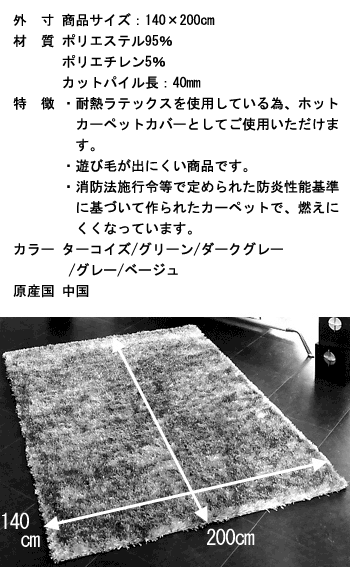 外 寸 商品サイズ：140×200cm
材 質 ポリエステル95%
ポリエチレン5%
カットパイル長：40mm
特 徴 ・耐熱ラテックスを使用している為、ホット
カーペットカバーとしてご使用いただけま
す。
・遊び毛が出にくい商品です。
・消防法施行令等で定められた防炎性能基準
に基づいて作られたカーペットで、燃えに
くくなっています。
カラー ターコイズ/グリーン/ダークグレー
/グレー/ベージュ
原産国 中国
140
cm
200cm